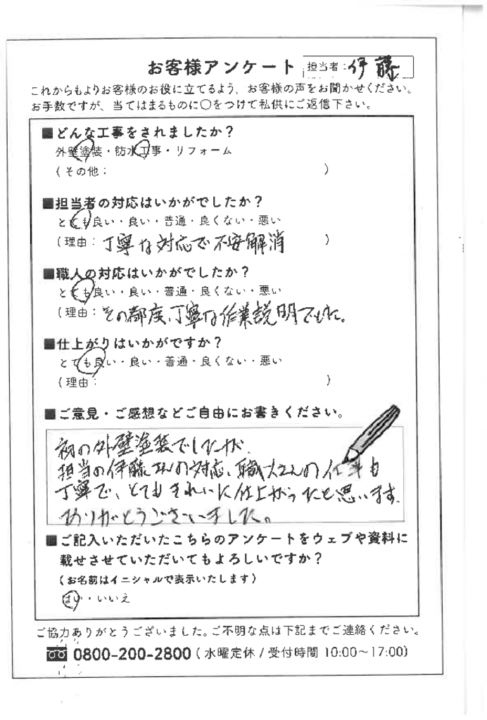 お客様アンケート 担当者:伊藤
これからもよりお客様のお役に立てるよう、お客様の声をお聞かせください。
お手数ですが、当てはまるものに○をつけて私供にご返信下さい。
■どんな工事をされましたか?
外壁塗装・防水工事・リフォーム
(その他: )
■担当者の対応はいかがでしたか?
とても良い・良い・普通・良くない・悪い
(理由:丁寧な対応で不安解消 )
■職人の対応はいかがでしたか?
とても良い・良い・普通・良くない・悪い
(理由:その都度、丁寧な作業説明でした。
■仕上がりはいかがですか?
とても良い・良い・普通・良くない・悪い
(理由: )
■ご意見・ご感想などご自由にお書きください。
初の外壁塗装でしたが、
担当の伊藤さんの対応、職人さんの仕事も
丁寧で、とてもきれいに仕上がったと思います。
ありがとうございました。
■ご記入いただいたこちらのアンケートをウェブや資料に
載せさせていただいてもよろしいですか?
(お名前はイニシャルで表示いたします)
はい・いいえ
ご協力ありがとうございました。ご不明な点は下記までご連絡ください。
0800-200-2800(水曜定休/受付時間 10:00~17:00)